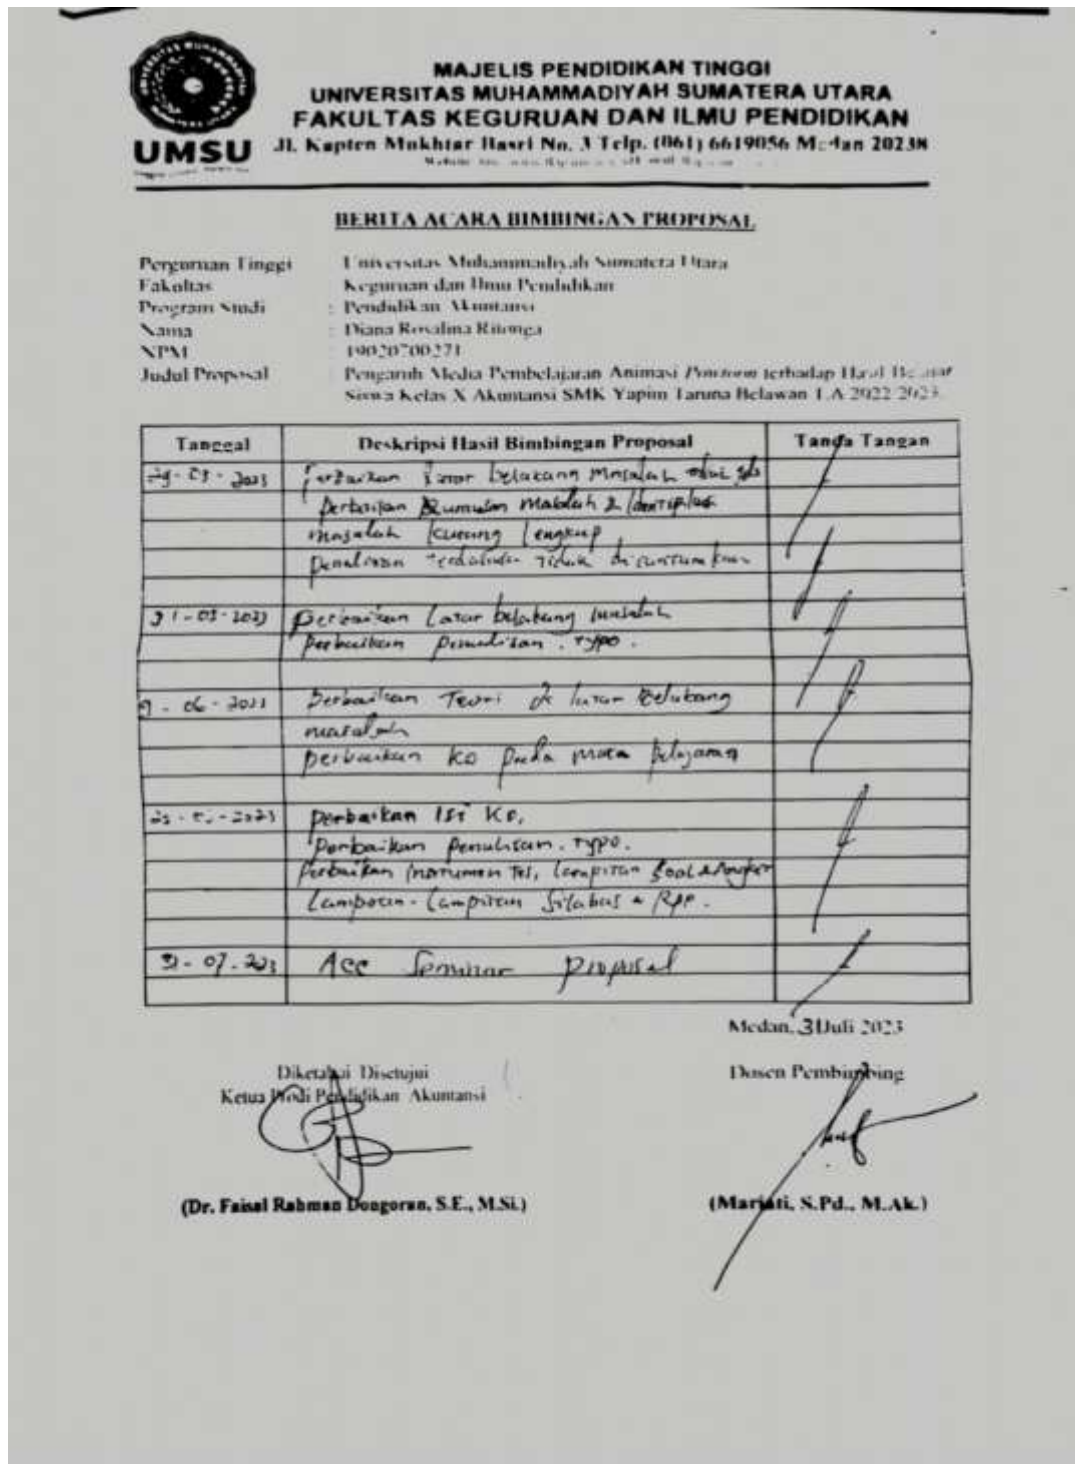 MAJELIS PENDIDIKAN TINGGI
UNIVERSITAS MUHAMMADIYAH SUMATERA UTARA
FAKULTAS KEGURUAN DAN ILMU PENDIDIKAN
UMSU
Jl. Kapten Mukhtar Basri No. 3 Telp. (061) 6619056 Medan 20238
BERITA ACARA BIMBINGAN PROPOSAL
Perguruan Tinggi Universitas Muhammadiyah Sumatera Utara
Fakultas Keguruan dan Ilmu Pendidikan
Program Studi : Pendidikan Akuntansi
Nama : Diana Rosalina Ritonga
NPM : 1902070027 1
Judul Proposal : Pengaruh Media Pembelajaran Animasi Powtoon terhadap Hasil Belajar
Siswa Kelas X Akuntansi SMK Yapim Taruna Belawan T.A 2022 2023
Tanggal Deskripsi Hasil Bimbingan Proposal Tanda Tangan
2023 Perbaikan Latar belakang Masalah
Perbaikan Rumusan Masalah & Identifikasi
masalah kurang lengkap
Penelitian terdahulu tidak dicantumkan
31-05-2023 Perbaikan Latar belakang masalah
Perbaikan penulisan. typo.
9-06-2023 Perbaikan Teori & latar Belakang
masalah
perbaikan KD pada mata pelajaran
2023 Perbaikan Isi KD,
Perbaikan Penulisan. typo.
Perbaikan Instrumen Tes, Lampiran Soal &
Lampiran-Lampiran Silabus & RPP.
31-07-2023 Acc Seminar proposal
Medan, 31 Juli 2023
Diketahui Disetujui
Ketua Prodi Pendidikan Akuntansi
Dosen Pembimbing
(Dr. Faisal Rahman Dongoran, S.E., M.Si.)
(Mariati, S.Pd., M.Ak.)